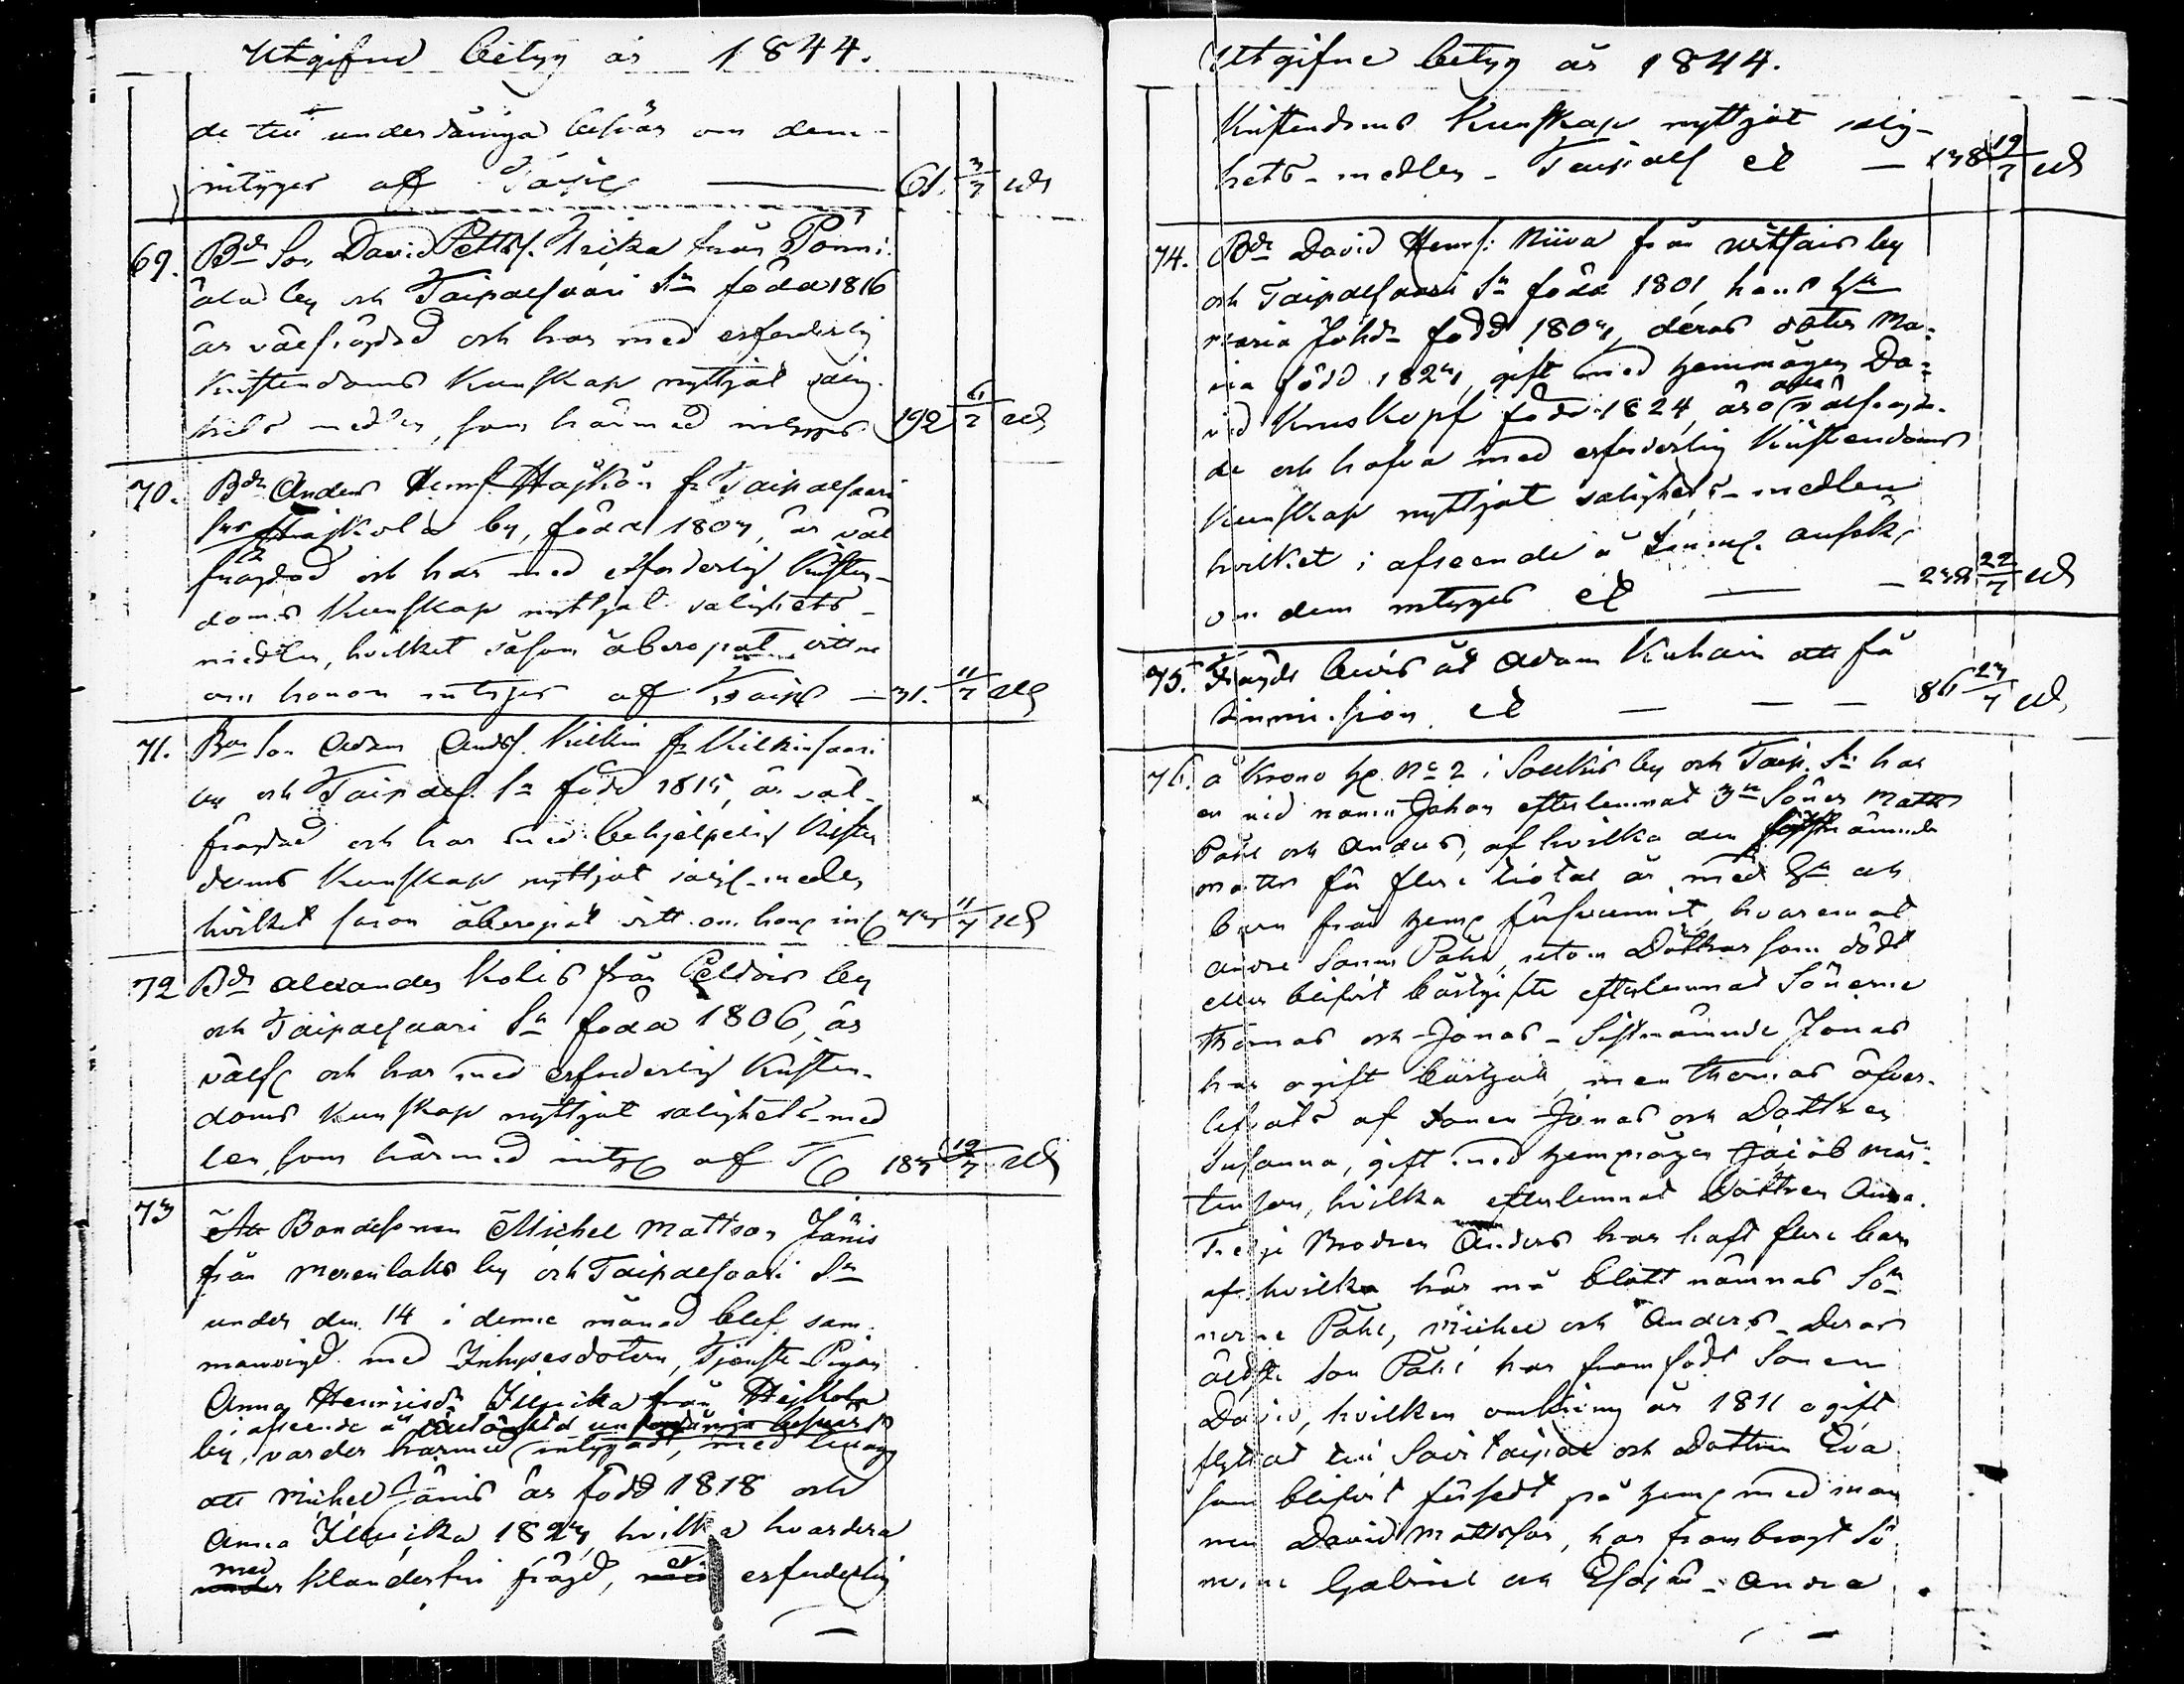 Utgifne betyg år 1844.
de till underdåniga besvär om dem
intygas af Taip 61. 3/7 uds
69. Bde Son David Petters. från
by och Taipalsaari Sn född 1816
är välfrägdad och har med erforderlig
Kristendoms Kunskap nyttjat salig-
hets medlen, som härmed intygas 192 6/7 uds
70. Bde Anders Henrs. Häjkön fr Taipalsaari
Sns by, född 1807, är väl
frägdad och har med erforderlig Kristen-
doms Kunskap nyttjat salighets-
medlen, hvilket såsom åberopat vittne
om honom intygas af Taips 31. 11/7 uds
71. Bde Son Adam Ands. Kilkin fr Kilkinsaari
by och Taipals. Sn född 1815, är väl-
frägdad och har med behjelpelig Kristen
doms Kunskap nyttjat salig-medlen
hvilket såsom åberopat vitt. om hon 11/7 uds
72 Bde Alexander Kolis från by
och Taipalsaari Sn född 1806, är
välf och har med erforderlig Kristen-
doms Kunskap nyttjat salighets-med
len, som härmed intyg af T 187 19/7 uds
73 Att Bondesonen Michel Mattson Jänis
från Merenlaks by och Taipalsaari Sn
under den 14 i denne månad blef sam-
manvigd med Inhysesdottern, Tjenste-Pigan
Anna Henricsdr Illuika från Hejkola
i afseende å
by, varder härmed intygadt, med tillägg
att Michel Jänis är född 1818 och
Anna Illuika 1823, hvilka hvardera
med
under klanderfri frägd, med erforderlig
Utgifne betyg år 1844.
Kristendoms Kunskap nyttjat salig-
hets-medlen - Taipals et 138 19/7 uds
74. Bde David Henrs: Niiva från by
och Taipalsaari Sn född 1801, hans hu
Maria Johsdr född 1803, deras dotter Ma-
ria född 1823, gift med hemmågen Da-
vid Kruskopf född 1824, äro alla välfrägda-
de och hafva med erforderlig Kristendoms
Kunskap nyttjat salighets-medlen
hvilket i afseende å ansök.
om dem intygas et 238 22/7 uds
75. Frägde bevis åt Adam Kuhain att få
et 86 23/7 uds
76. å Krono he. No 2 i Solkis by och Taip. Sn har
en vid namn Johan efterlemnat 3ne Söner Matts
Påhl och Anders, af hvilka den förstnämnde
Matts för flere tiotal år med hu och
barn från hem försvunnit, hvaremot
andre Sonen Påhl, utom Döttrar som dödt
eller blifvit bortgifte efterlemnat Sönerne
Thomas och Jonas - Sistnämnde Jonas
har ogift bortgått, men Thomas öfver-
lefvats af Sonen Jonas och Dottren
Susanna, gift med hemmågen Jacob Mår-
tenson, hvilka efterlemnat Dottren Anna.
Tredje Brodren Anders har haft flere barn
af hvilka här må blott nämnas Sö-
nerne Påhl, Michel och Anders - Deras
äldste son Påhl har framfödt Sonen
David, hvilken omkring år 1811 ogift
flyttat till Savitaipal och Dottren Eva
som blifvit försedt på hem med man
nen David Mattsson, har frambragt Sö-
nerne Gabriel och Esajas - Andra